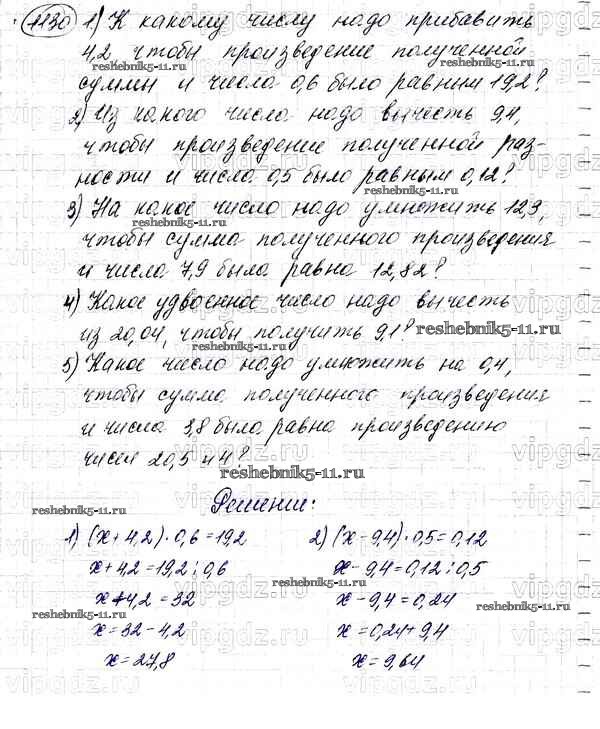 1130 1) К какому числу надо прибавить
4,2 чтобы произведение полученной
суммы и числа 0,6 было равным 19,2?
2) Из какого числа надо вычесть 9,4,
чтобы произведение полученной раз-
ности и числа 0,5 было равным 0,12?
3) На какое число надо умножить 12,3,
чтобы сумма полученного произведения
и числа 7,9 была равна 12,82?
4) Какое удвоенное число надо вычесть
из 20,04, чтобы получить 9,1?
5) Какое число надо умножить на 0,4,
чтобы сумма полученного произведения
и числа 3,8 была равна произведению
чисел 20,5 и 4?
Решение:
1) (x + 4,2) · 0,6 = 19,2
x + 4,2 = 19,2 : 0,6
x + 4,2 = 32
x = 32 - 4,2
x = 27,8
2) (x - 9,4) · 0,5 = 0,12
x - 9,4 = 0,12 : 0,5
x - 9,4 = 0,24
x = 0,24 + 9,4
x = 9,64
reshebnik5-11.ru
vipgdz.ru